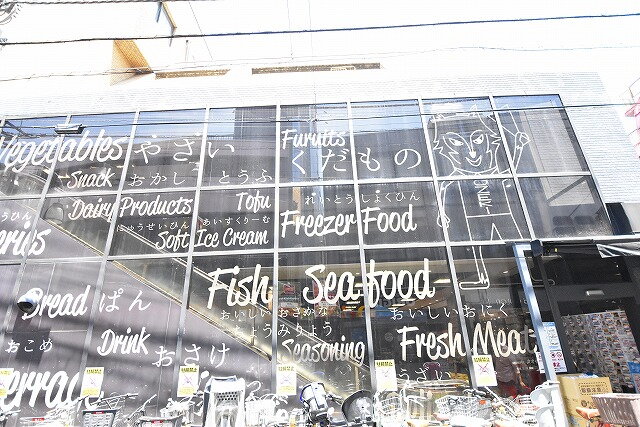 Vegetables やさい Furutts くだもの
Snack おかし とうふ
Dairy Products Tofu れいとうしょくひん
にゅうせいひん あいすくりーむ Freezer Food
Soft Ice Cream
Fish Sea-food
Bread ぱん おいしいおさかな おいしいおにく
ちょうみりょう
おこめ Drink おさけ Seasoning Fresh Meat